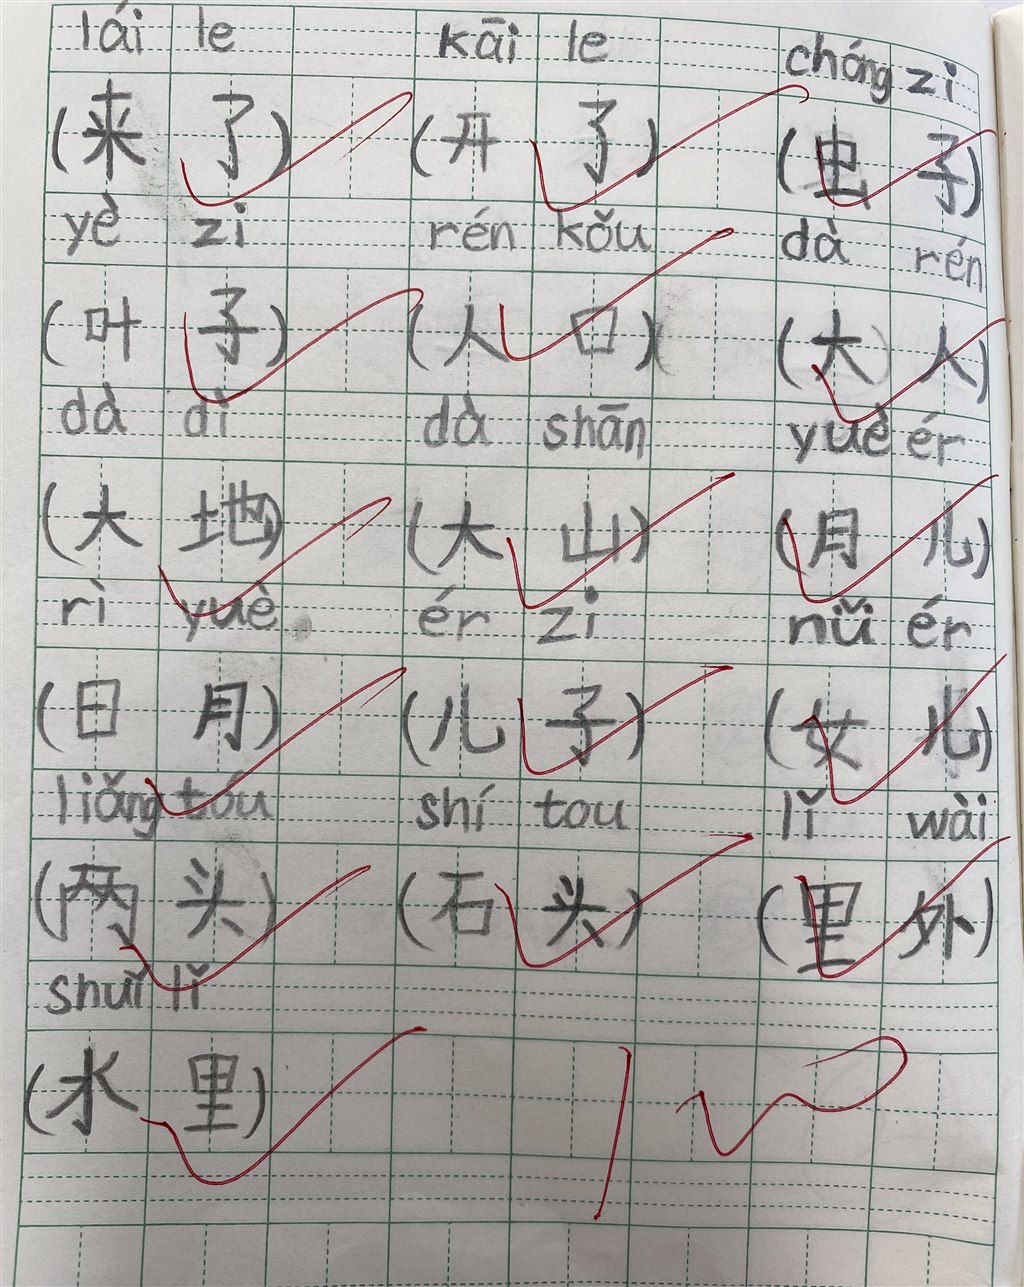 lái le kāi le chóng zi
(来 了) (开 了) (虫 子)
yè zi rén kǒu dà rén
(叶 子) (人 口) (大 人)
dà dì dà shān yuè ér
(大 地) (大 山) (月 儿)
rì yuè ér zi nǚ ér
(日 月) (儿 子) (女 儿)
liǎng tóu shí tou lǐ wài
(两 头) (石 头) (里 外)
shuǐ lǐ
(水 里)